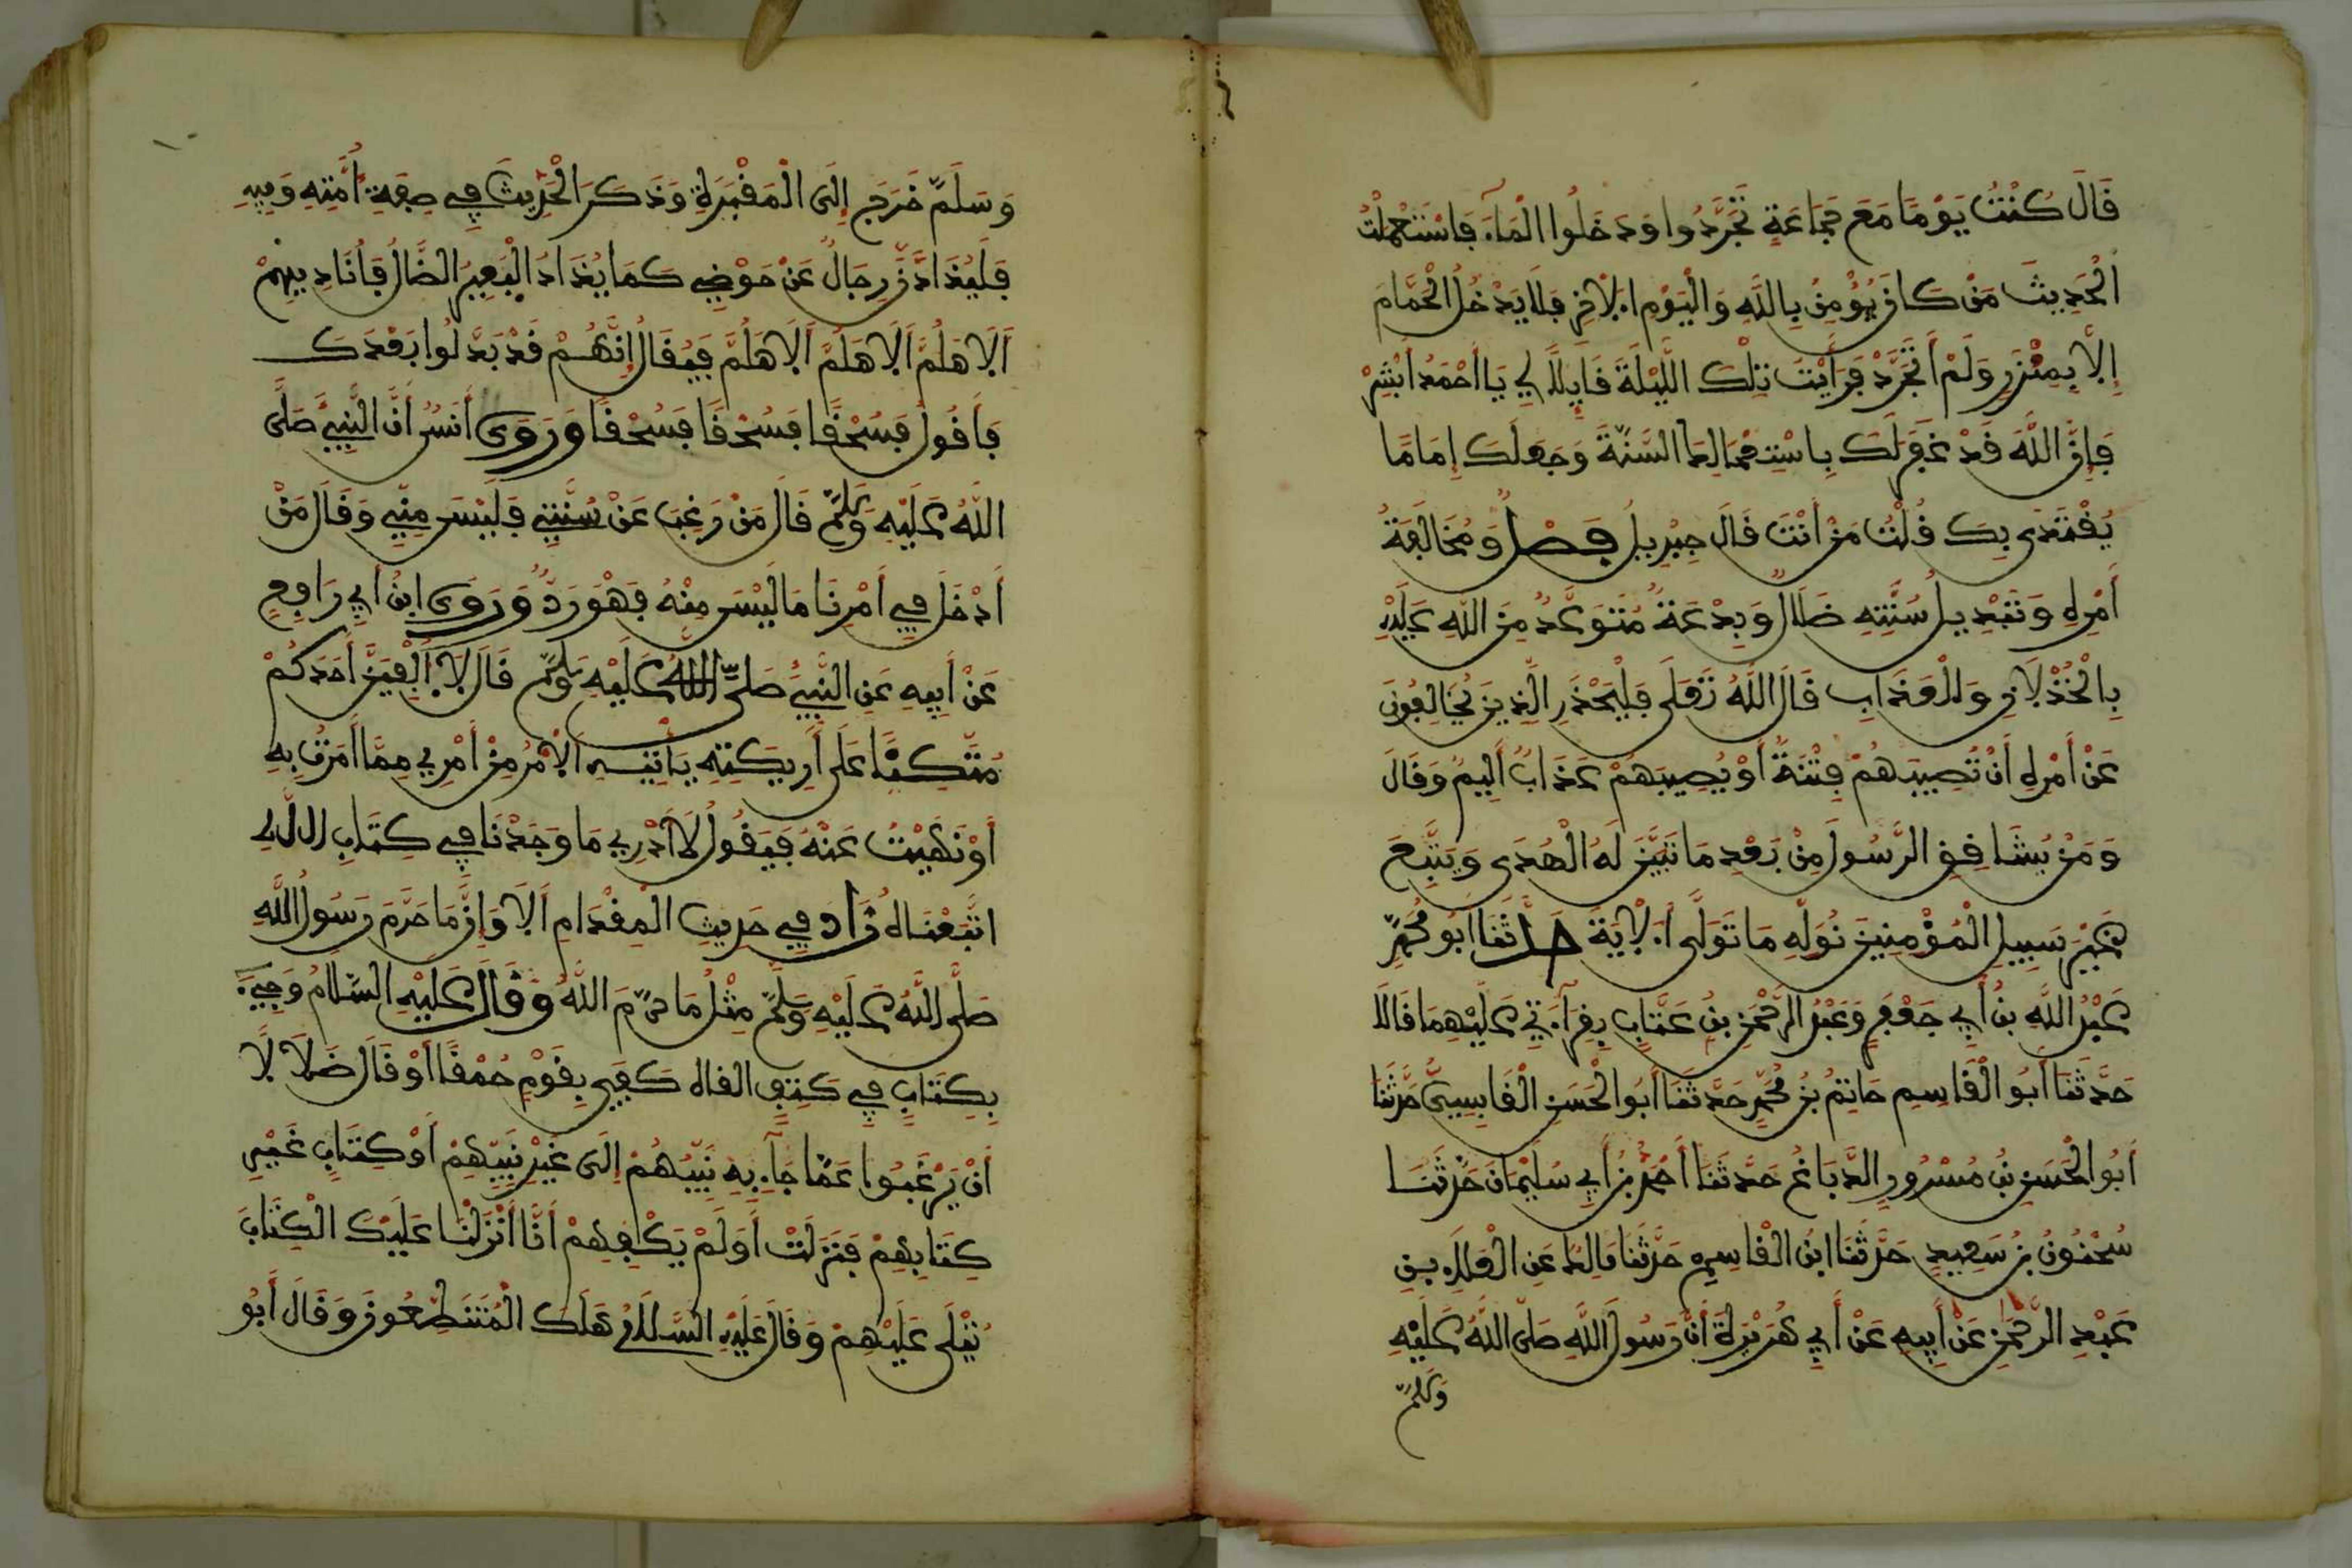 قَالَ كُنْتُ يَوْمًا مَعَ جَمَاعَةٍ تَجَرَّدُوا وَدَخَلُوا الْمَاءَ فَاسْتَعْمَلْتُ
الْحَدِيثَ مَنْ كَانَ يُؤْمِنُ بِاللَّهِ وَالْيَوْمِ الْآخِرِ فَلَا يَدْخُلِ الْحَمَّامَ
إِلَّا بِمِئْزَرٍ وَلَمْ أَتَجَرَّدْ فَرَأَيْتُ تِلْكَ اللَّيْلَةَ قَائِلًا لِي يَا أَحْمَدُ أَبْشِرْ
فَإِنَّ اللَّهَ قَدْ غَفَرَ لَكَ بِاسْتِعْمَالِكَ السُّنَّةَ وَجَعَلَكَ إِمَامًا
يُقْتَدَى بِكَ قُلْتُ مَنْ أَنْتَ قَالَ جِبْرِيلُ فَصْلٌ وَمُخَالَفَةُ
أَمْرِهِ وَتَبْدِيلُ سُنَّتِهِ ضَلَالٌ وَبِدْعَةٌ مُتَوَعَّدٌ مِنَ اللَّهِ عَلَيْهِ
بِالْخُذْلَانِ وَالْعَذَابِ قَالَ اللَّهُ تَعَلَى فَلْيَحْذَرِ الَّذِينَ يُخَالِفُونَ
عَنْ أَمْرِهِ أَنْ تُصِيبَهُمْ فِتْنَةٌ أَوْ يُصِيبَهُمْ عَذَابٌ أَلِيمٌ وَقَالَ
وَمَنْ يُشَاقِقِ الرَّسُولَ مِنْ بَعْدِ مَا تَبَيَّنَ لَهُ الْهُدَى وَيَتَّبِعْ
غَيْرَ سَبِيلِ الْمُؤْمِنِينَ نُوَلِّهِ مَا تَوَلَّى الْآيَةَ حَدَّثَنَا أَبُو مُحَمَّدٍ
عَبْدُ اللَّهِ بْنُ أَبِي جَعْفَرٍ وَعَبْدُ الرَّحْمَنِ بْنُ عَتَّابٍ بِقِرَاءَتِي عَلَيْهِمَا قَالَا
حَدَّثَنَا أَبُو الْقَاسِمِ حَاتِمُ بْنُ مُحَمَّدٍ حَدَّثَنَا أَبُو الْحَسَنِ الْقَابِسِيُّ حَدَّثَنَا
أَبُو الْحَسَنِ بْنُ مَسْرُورٍ الدَّبَّاغُ حَدَّثَنَا أَحْمَدُ بْنُ أَبِي سُلَيْمَانَ حَدَّثَنَا
سُحْنُونُ بْنُ سَعِيدٍ حَدَّثَنَا ابْنُ الْقَاسِمِ حَدَّثَنَا مَالِكٌ عَنِ الْعَلَاءِ بْنِ
عَبْدِ الرَّحْمَنِ عَنْ أَبِيهِ عَنْ أَبِي هُرَيْرَةَ أَنَّ رَسُولَ اللَّهِ صَلَّى اللَّهُ عَلَيْهِ
وَسَلَّمَ
وَسَلَّمَ خَرَجَ إِلَى الْمَقْبَرَةِ وَذَكَرَ الْحَدِيثَ فِي صِفَةِ أُمَّتِهِ وَفِيهِ
فَلَيُذَادَنَّ رِجَالٌ عَنْ حَوْضِي كَمَا يُذَادُ الْبَعِيرُ الضَّالُّ فَأُنَادِيهِمْ
أَلَا هَلُمَّ أَلَا هَلُمَّ أَلَا هَلُمَّ فَيُقَالُ إِنَّهُمْ قَدْ بَدَّلُوا بَعْدَكَ
فَأَقُولُ فَسُحْقًا فَسُحْقًا فَسُحْقًا وَرَوَى أَنَسٌ أَنَّ النَّبِيَّ صَلَّى
اللَّهُ عَلَيْهِ وَسَلَّمَ قَالَ مَنْ رَغِبَ عَنْ سُنَّتِي فَلَيْسَ مِنِّي وَقَالَ مَنْ
أَدْخَلَ فِي أَمْرِنَا مَا لَيْسَ مِنْهُ فَهْوَ رَدٌّ وَرَوَى ابْنُ أَبِي رَافِعٍ
عَنْ أَبِيهِ عَنِ النَّبِيِّ صَلَّى اللَّهُ عَلَيْهِ وَسَلَّمَ قَالَ لَا أُلْفِيَنَّ أَحَدَكُمْ
مُتَّكِئًا عَلَى أَرِيكَتِهِ يَأْتِيهِ الْأَمْرُ مِنْ أَمْرِي مِمَّا أَمَرْتُ بِهِ
أَوْ نَهَيْتُ عَنْهُ فَيَقُولُ لَا أَدْرِي مَا وَجَدْنَا فِي كِتَابِ اللَّهِ
اتَّبَعْنَاهُ زَادَ فِي حَدِيثِ الْمِقْدَامِ أَلَا وَإِنَّ مَا حَرَّمَ رَسُولُ اللَّهِ
صَلَّى اللَّهُ عَلَيْهِ وَسَلَّمَ مِثْلُ مَا حَرَّمَ اللَّهُ وَقَالَ عَلَيْهِ السَّلَامُ وَجِيءَ
بِكِتَابٍ فِي كَتِفٍ فقال كَفَى بِقَوْمٍ حُمْقًا أَوْ قَالَ ضَلَالًا
أَنْ يَرْغَبُوا عَمَّا جَاءَ بِهِ نَبِيُّهُمْ إِلَى غَيْرِ نَبِيِّهِمْ أَوْ كِتَابٍ غَيْرِ
كِتَابِهِمْ فَنَزَلَتْ أَوَلَمْ يَكْفِهِمْ أَنَّا أَنْزَلْنَا عَلَيْكَ الْكِتَابَ
يُتْلَى عَلَيْهِمْ وَقَالَ عَلَيْهِ السَّلَامُ هَلَكَ الْمُتَنَطِّعُونَ وَقَالَ أَبُو